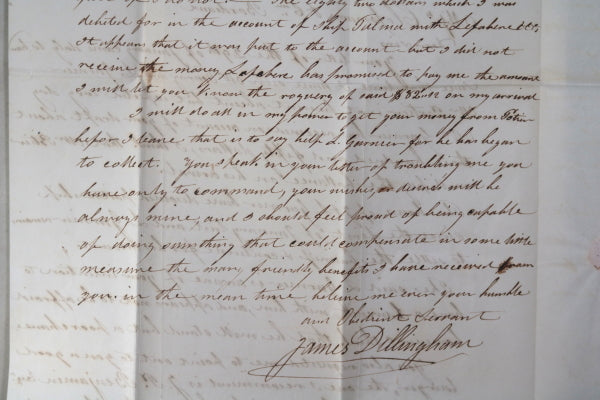 The eighty two dollars which I was
debited for in the account of Ship Talma with Lefebere &Co,
It appears that it was put to the account but I did not
receive the money Lefebere has promised to pay me the amount
I will let you know the roguery of said $82.12 on my arrival
I will do all in my power to get your money from
before I leave that is to say help L. Garnier for he has began
to collect. You speak in your letter of troubling me you
have only to command, your wishes, or desires will be
always mine, and I should feel proud of being capable
of doing something that could compensate in some little
measure the many friendly benefits I have received from
you in the mean time believe me ever your humble
and Obedient Servant
James Dillingham